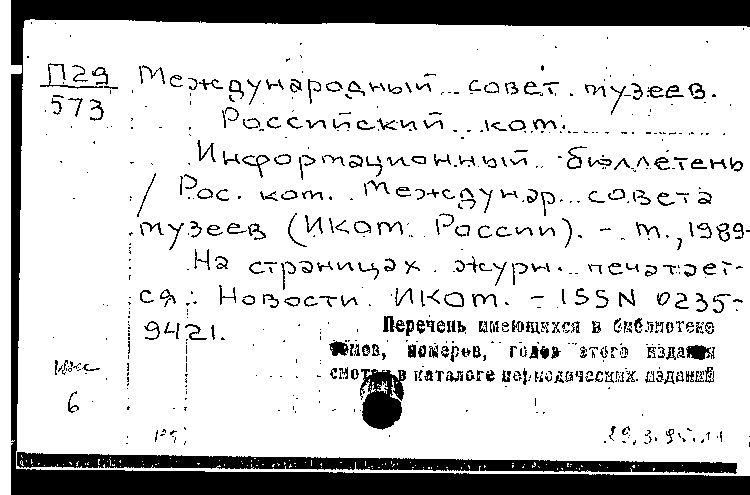 П29
573
Международный совет музеев.
Российский ком.
Информационный бюллетень
/ Рос. ком. Междунар. совета
музеев (ИКОМ России). - М., 1989-
На страницах журн. печатает-
ся: Новости ИКОМ. - ISSN 0235-
9421.
Перечень имеющихся в библиотеке
томов, номеров, годов этого издания
смотри в каталоге периодических изданий
6